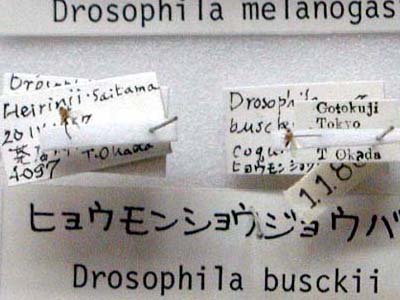 Drosophila melanogas
Heirinji. Saitama
T. Okada
4097
Drosophila
busck
Coqu
ヒョウモンショウ
Gotokuji
Tokyo
T Okada
11.8
ヒョウモンショウジョウバ
Drosophila busckii